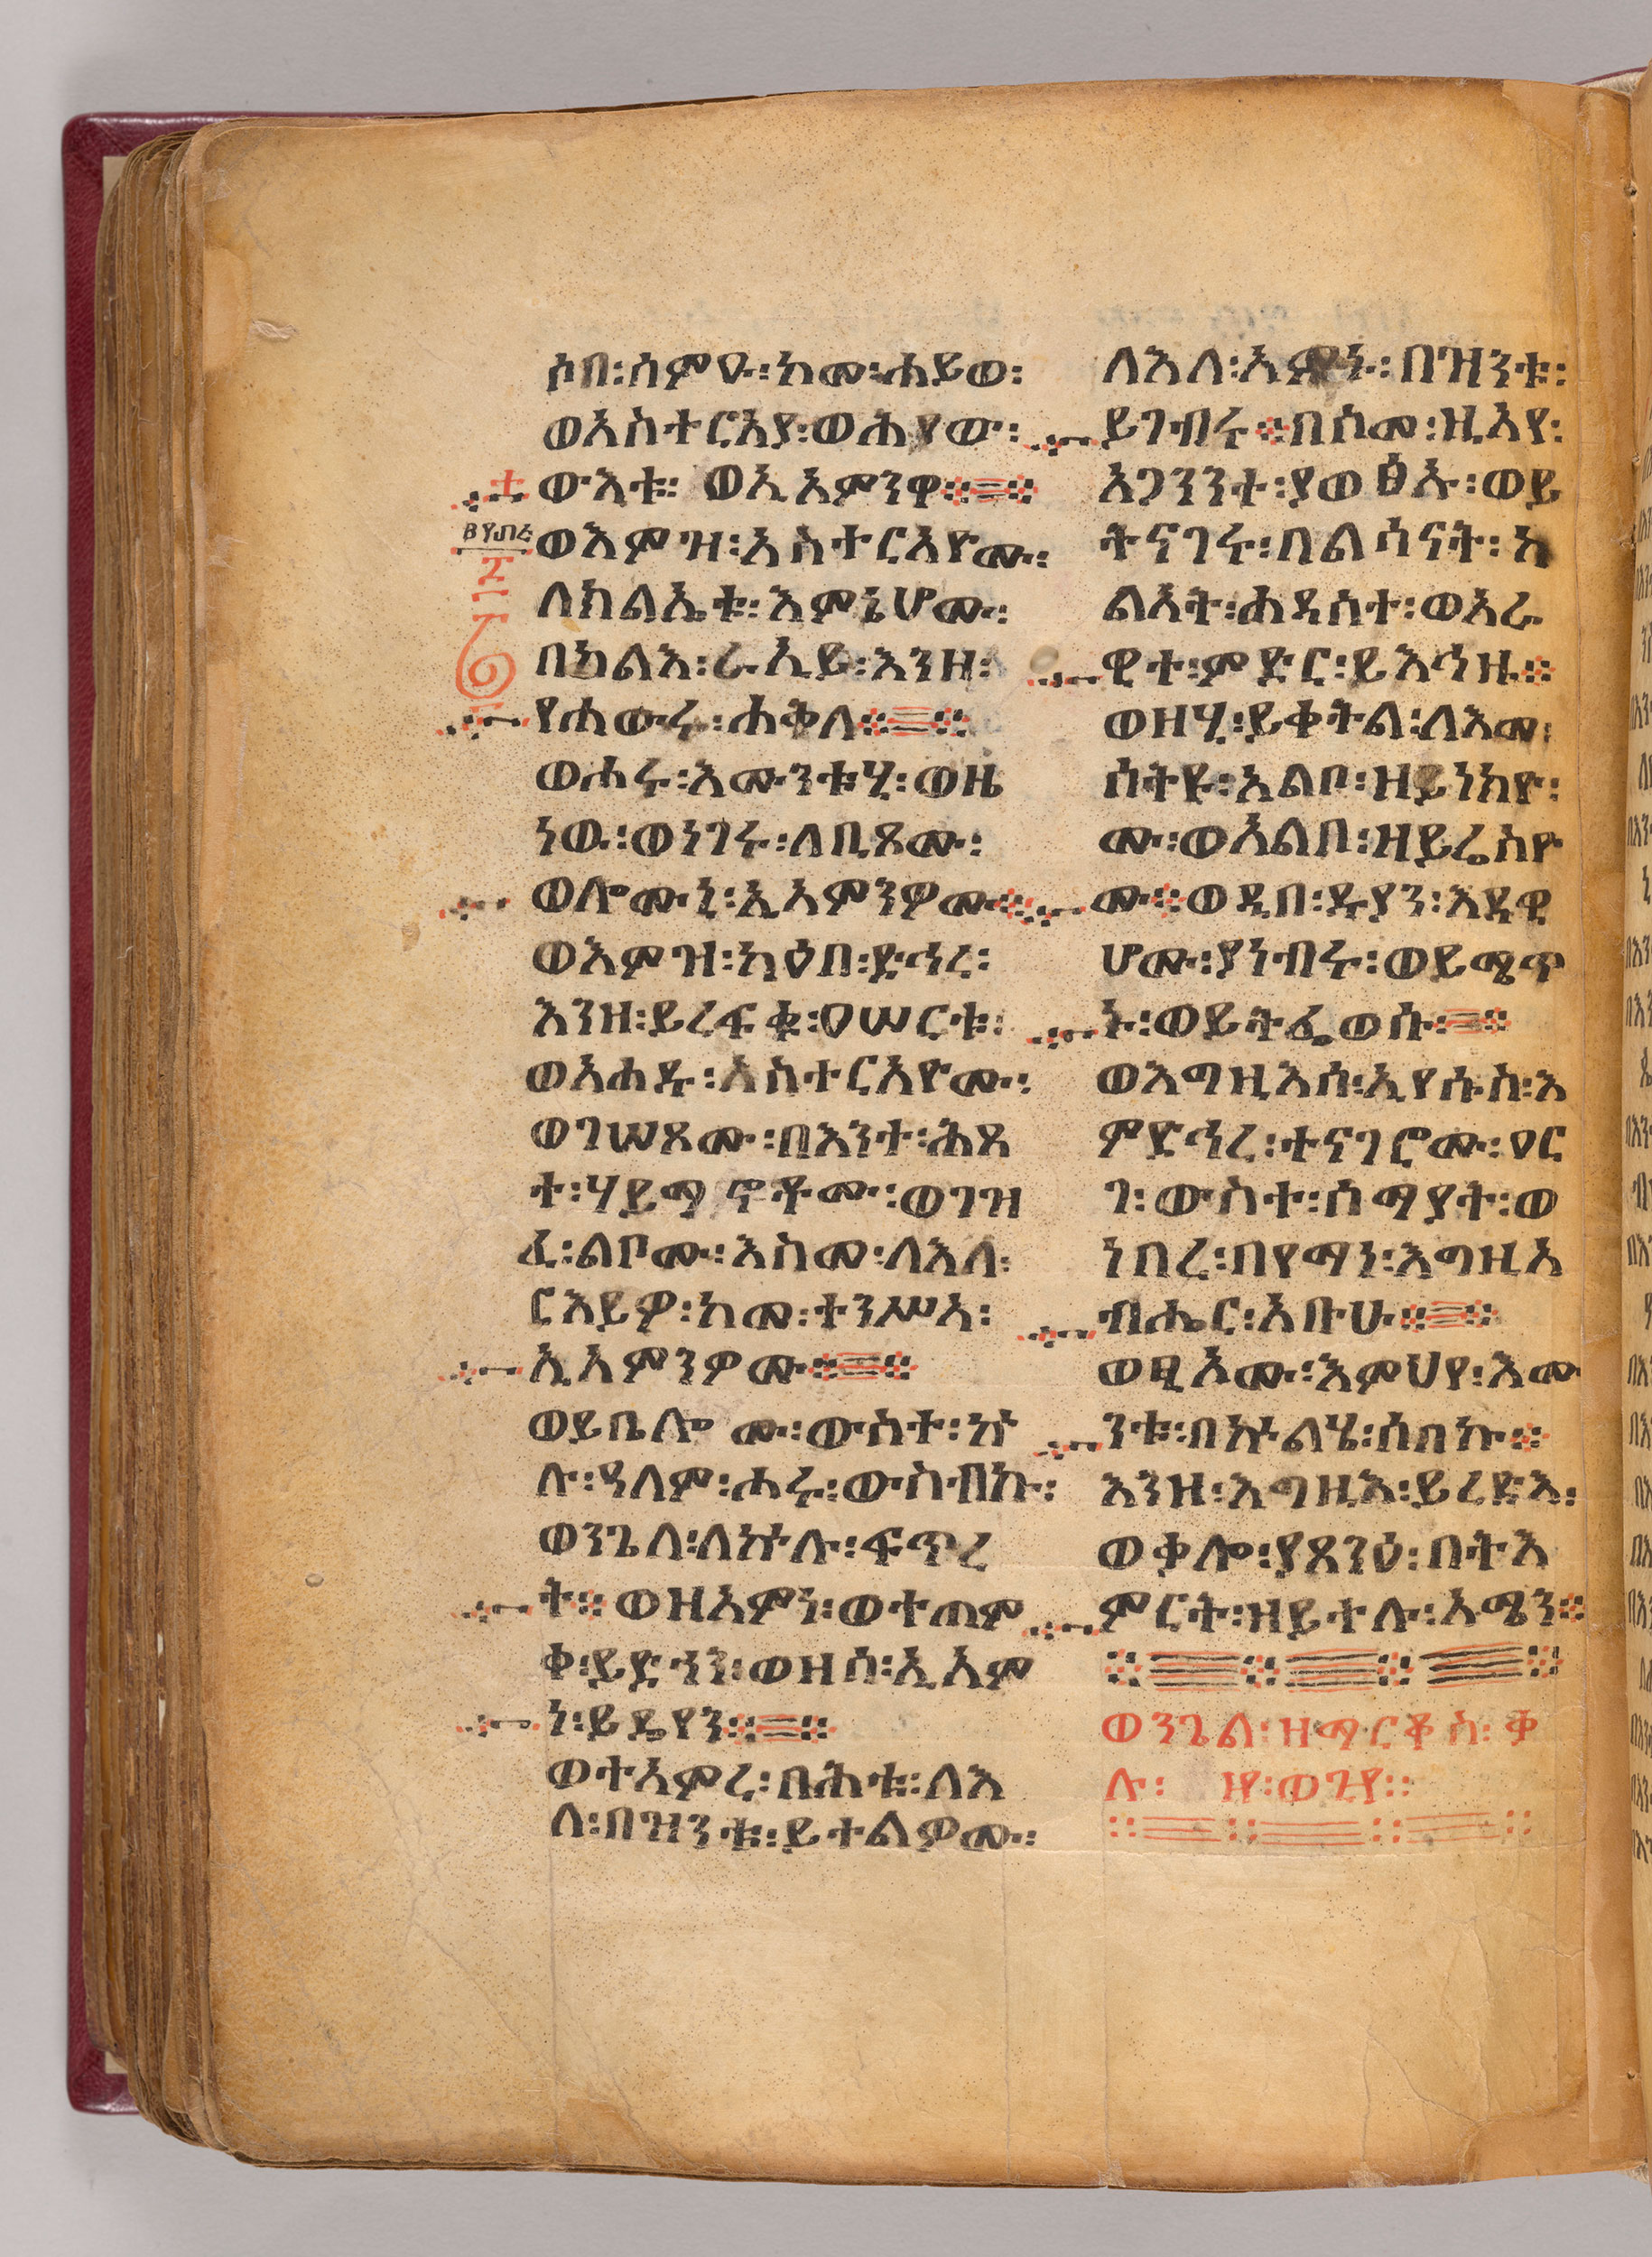 ሶበ፡ሰምዑ፡ከመ፡ሐይወ፡
ወአስተርአያ፡ወሕያው፡
ውእቱ፡ ወኢአምንዋ፨
ወእምዝ፡አስተርአዮሙ፡
ለክልኤቱ፡እምኔሆሙ፡
በካልእ፡ራእይ፡እንዘ፡
የሐውሩ፡ሐቅለ፨
ወሐሩ፡እሙንቱሂ፡ወዜ
ነዉ፡ወነገሩ፡ለቢጾሙ፡
ወሎሙኒ፡ኢአምንዎሙ፨
ወእምዝ፡ካዕበ፡ድኅረ፡
እንዘ፡ይረፍቁ፡፲ወ
ወአሐዱ፡አስተርአዮሙ፡
ወገሠጾሙ፡በእንተ፡ሕጸ
ተ፡ሃይማኖቶሙ፡ወገዝ
ፈ፡ልቦሙ፡እስመ፡ለእለ፡
ርእይዎ፡ከመ፡ተንሥአ፡
ኢአምንዎሙ፨
ወይቤሎሙ፡ውስተ፡ኵ
ሉ፡ዓለም፡ሐሩ፡ውስብኩ፡
ወንጌለ፡ለኵሉ፡ፍጥረ
ት፨ወዝአምነ፡ወተጠም
ቀ፡ይድኅን፡ወዘሰ፡ኢአም
ነ፡ይዴየን፨
ወተአምረ፡በሕቱ፡ለእ
ለ፡በዝንቱ፡ይተልዎሙ፡
ለእለ፡አምኑ፡በዝንቱ፡
ይገብሩ፨በስመ፡ዚአየ፡
አጋንንተ፡ያወፅኡ፡ወይ
ትናገሩ፡በልሳናት፡ካ
ልእት፡ሐዳስተ፡ወአራ
ዊተ፡ምድር፡ይእኅዙ፨
ወዘሂ፡ይቀትል፡ለእመ፡
ሰትዩ፡አልቦ፡ዘይነክዮ፡
ሙ፡ወአልቦ፡ዘይሬስዮ
ሙ፨ወዲበ፡ዱያን፡እደዊ
ሆሙ፡ያነብሩ፡ወይሜጥ
ኑ፡ወይትፌወሱ፨
ወእግዚእሰ፡ኢየሱስ፡እ
ምድኅረ፡ተናገሮሙ፡ዐር
ገ፡ውስተ፡ሰማያት፡ወ
ነበረ፡በየማነ፡እግዚአ
ብሔር፡አቡሁ፨
ወፂኦሙ፡እምህየ፡እሙ
ንቱ፡በኵልሄ፡ሰበኩ፨
እንዘ፡እግዚእ፡ይረድእ፡
ወቃሎ፡ያጸንዕ፡በትእ
ምርት፡ዘይተሉ፡አሜን፨
ወንጌል፡ዘማርቆስ፡ቃ
ሉ፡